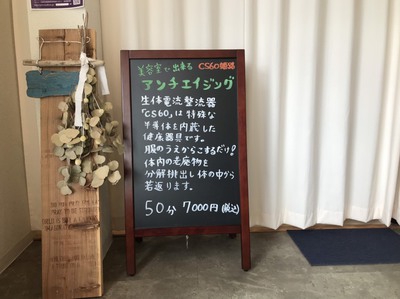 美容室で出来る CS60姫路
アンチエイジング
生体電流整流器
「CS60」は特殊な
半導体を内蔵した
健康器具です。
服のうえからこするだけ!
体内の老廃物を
分解排出し体の中から
若返ります。
50分 7000円(税込)